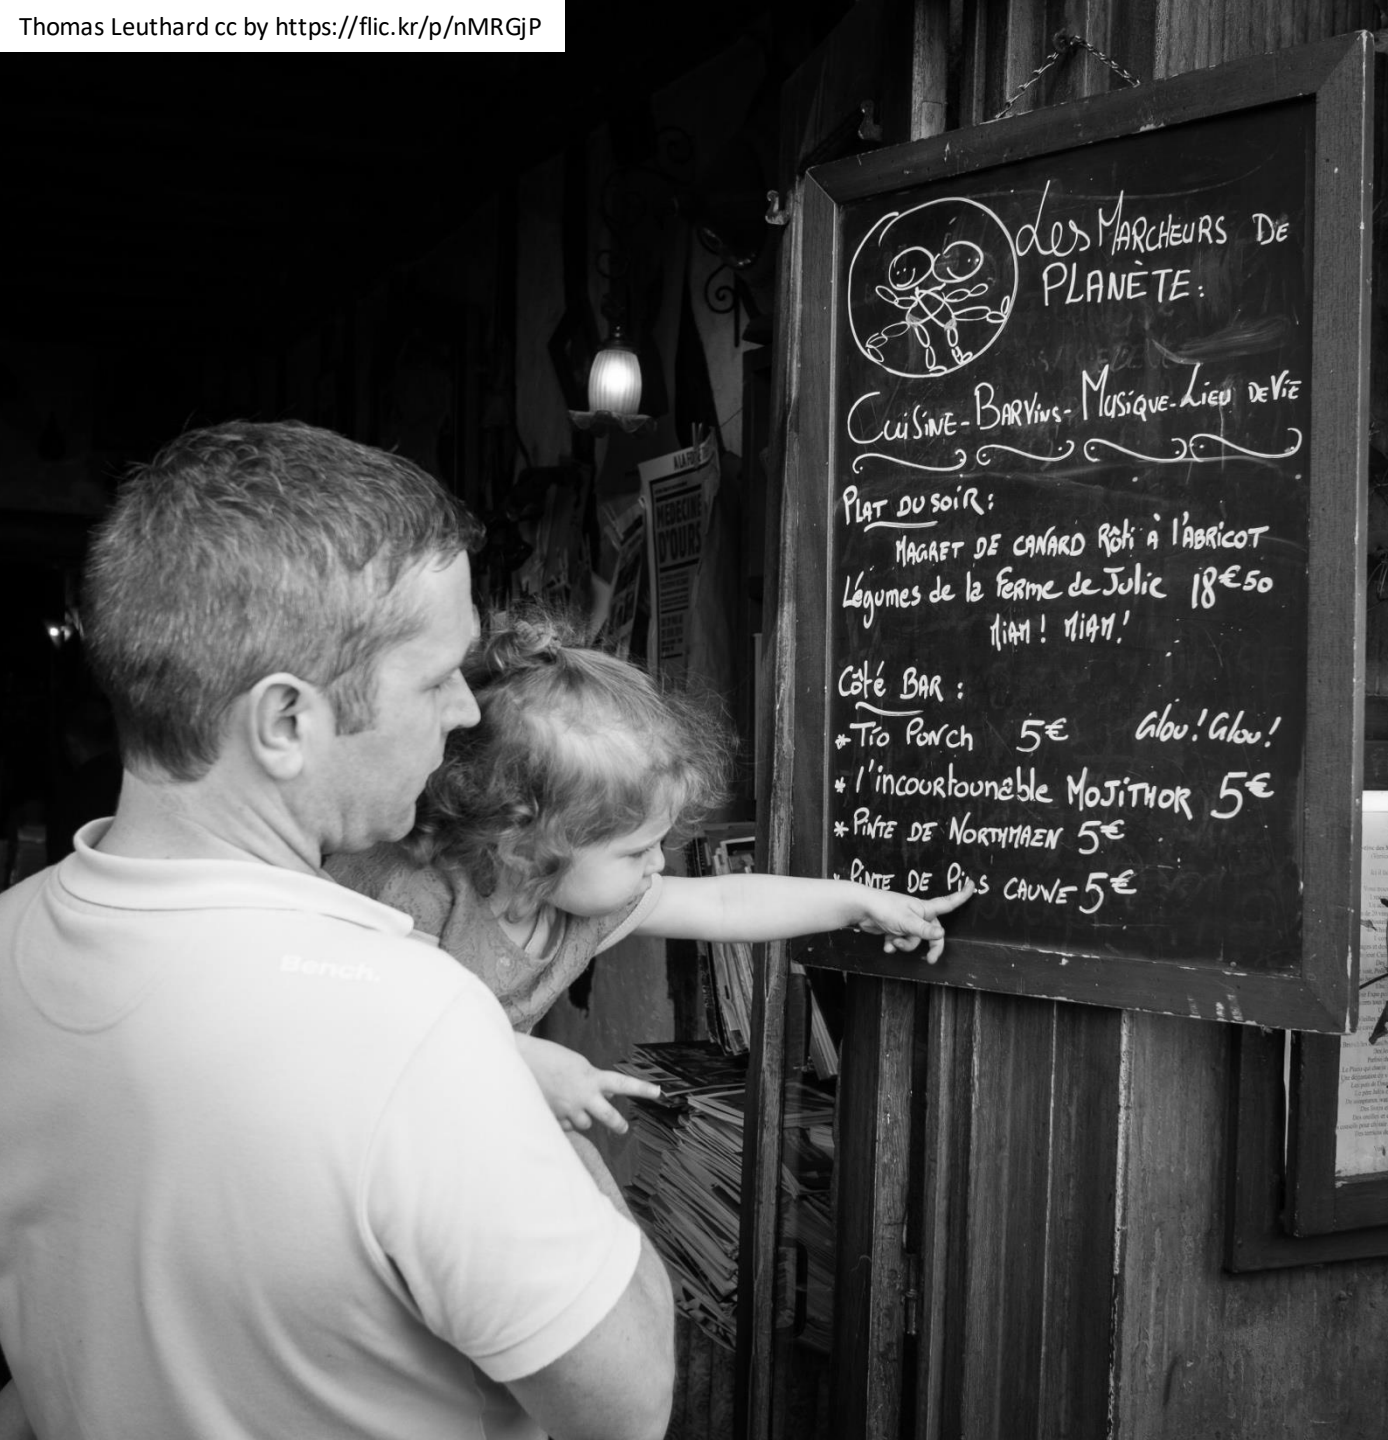 Thomas Leuthard cc by https://flic.kr/p/nMRGjP
Les MARCHEURS DE
PLANÈTE:
CuiSiNE-BARViNs-MUSiQUE-LiEU DE ViE
PLAT DU SOiR:
MAGRET DE CANARD Rôti À l'ABRICOT
Légumes de la Ferme de Julie 18€50
MiAM! MiAM!
Côté BAR:
*Tio PoNch 5€ Glou! Glou!
*l'incourtounable MOJiTHOR 5€
*PiNTE DE NORTHMAEN 5€
PiNTE DE CAUWE 5€
Bench.
MEDECINE
D'OURS